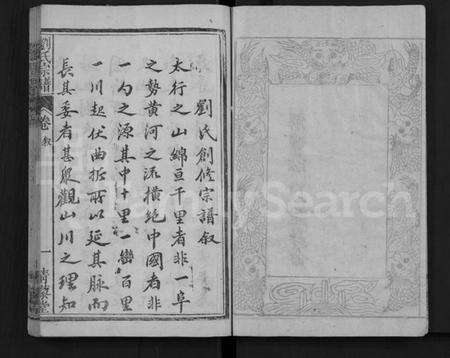 劉氏創修宗譜叙
太行之山綿亘千里者非一阜
之勢黄河之流横絶中國者非
一勺之源其中十里一巒百里
一川起伏曲折所以延其脉而
長其委者甚眾觀山川之理知
劉氏宗譜
卷 叙
一
青藜堂
FamilySearch